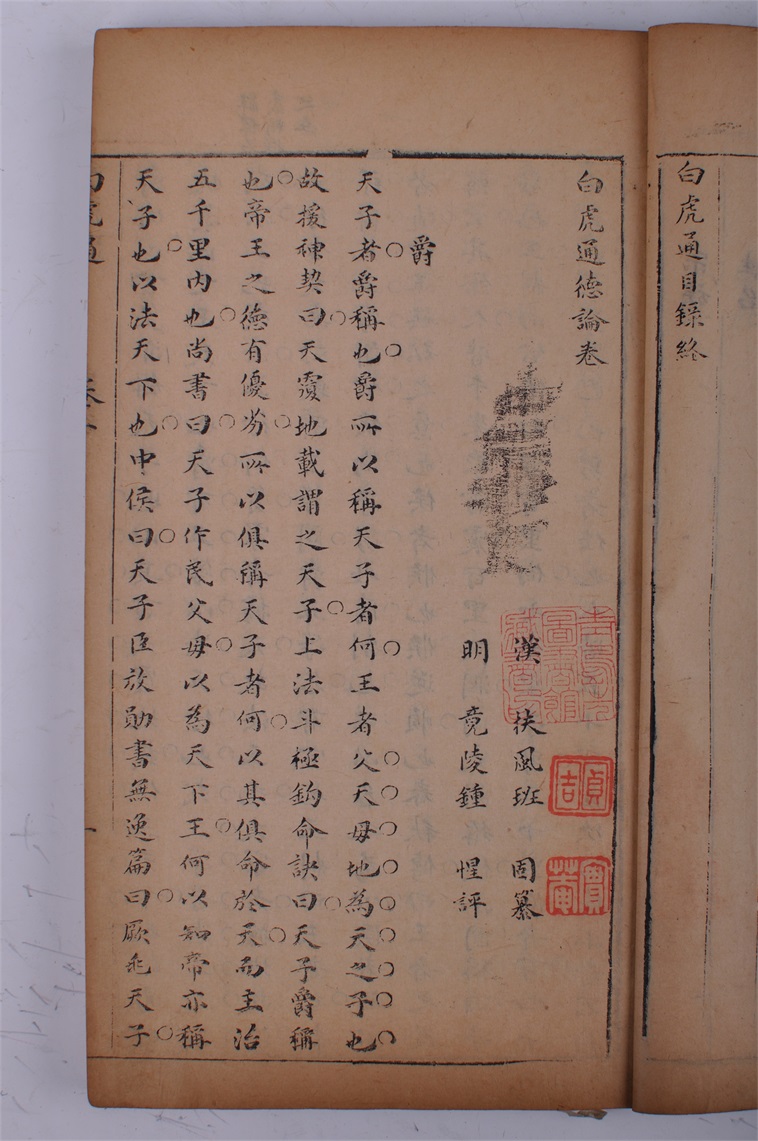 白虎通目錄終
白虎通德論卷
漢 扶風班 固纂
明 竟陵鍾 惺評
爵
天子者爵稱也爵所以稱天子者何王者父天母地為天之子也
故援神契曰天覆地載謂之天子上法斗極鈎命訣曰天子爵稱
也帝王之德有優劣所以俱稱天子者何以其俱命於天而主治
五千里內也尚書曰天子作民父母以為天下王何以知帝亦稱
天子也以法天下也中侯曰天子臣放勛書無逸篇曰厥兆天子
白虎通
貞吉